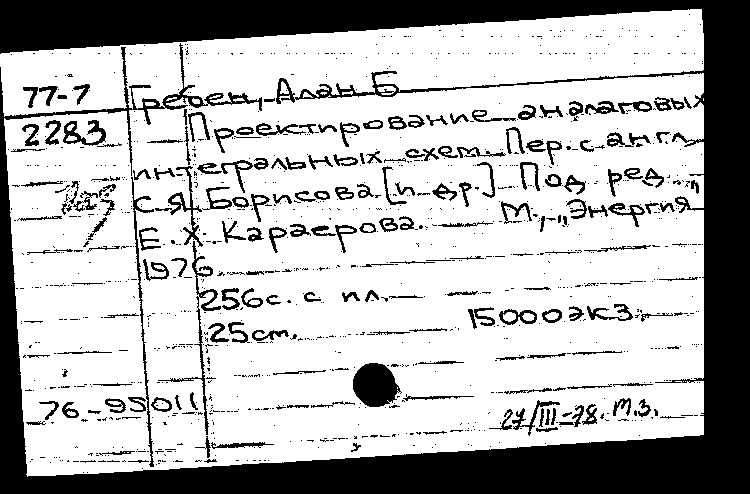 77-7 Гребен, Алан Б
2283 Проектирование аналаговых
интегральных схем. Пер. с англ
С.Я Борисова [и др.] Под ред
Е.Х Караерова. М., „Энергия"
1976.
256с. с ил.
25см. 15000экз.
76-95011
27/III-78. М.З.